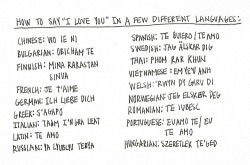 HOW TO SAY "I LOVE YOU" IN A FEW DIFFERENT LANGUAGES:
CHINESE: WO IE NI
BULGARIAN: OBICHAM TE
FINNISH: MINA RABASTAN
SINUA
FRENCH: JE T'AIME
GERMAN: ICH LIEBE DICH
GREEK: S'AGAPO
ITALIAN:
LATIN: TE AMO
RUSSIAN: YA LYUBLU TEBYA
SPANISH: TE QUIERO / TE AMO
SWEDISH: JAG ÄLSKAR DIG
THAI: PHOM RAK KHUN
VIETNAMESE: EM YEU ANH
WELSH: 'RWYN DY GARU DI
NORWEGIAN: JEG ELSKER DEG
ROMANIAN: TE IUBESC
PORTUGUESE: EU AMO TE / EU
TE AMO
HUNGARIAN: SZERETLEK TE'GED